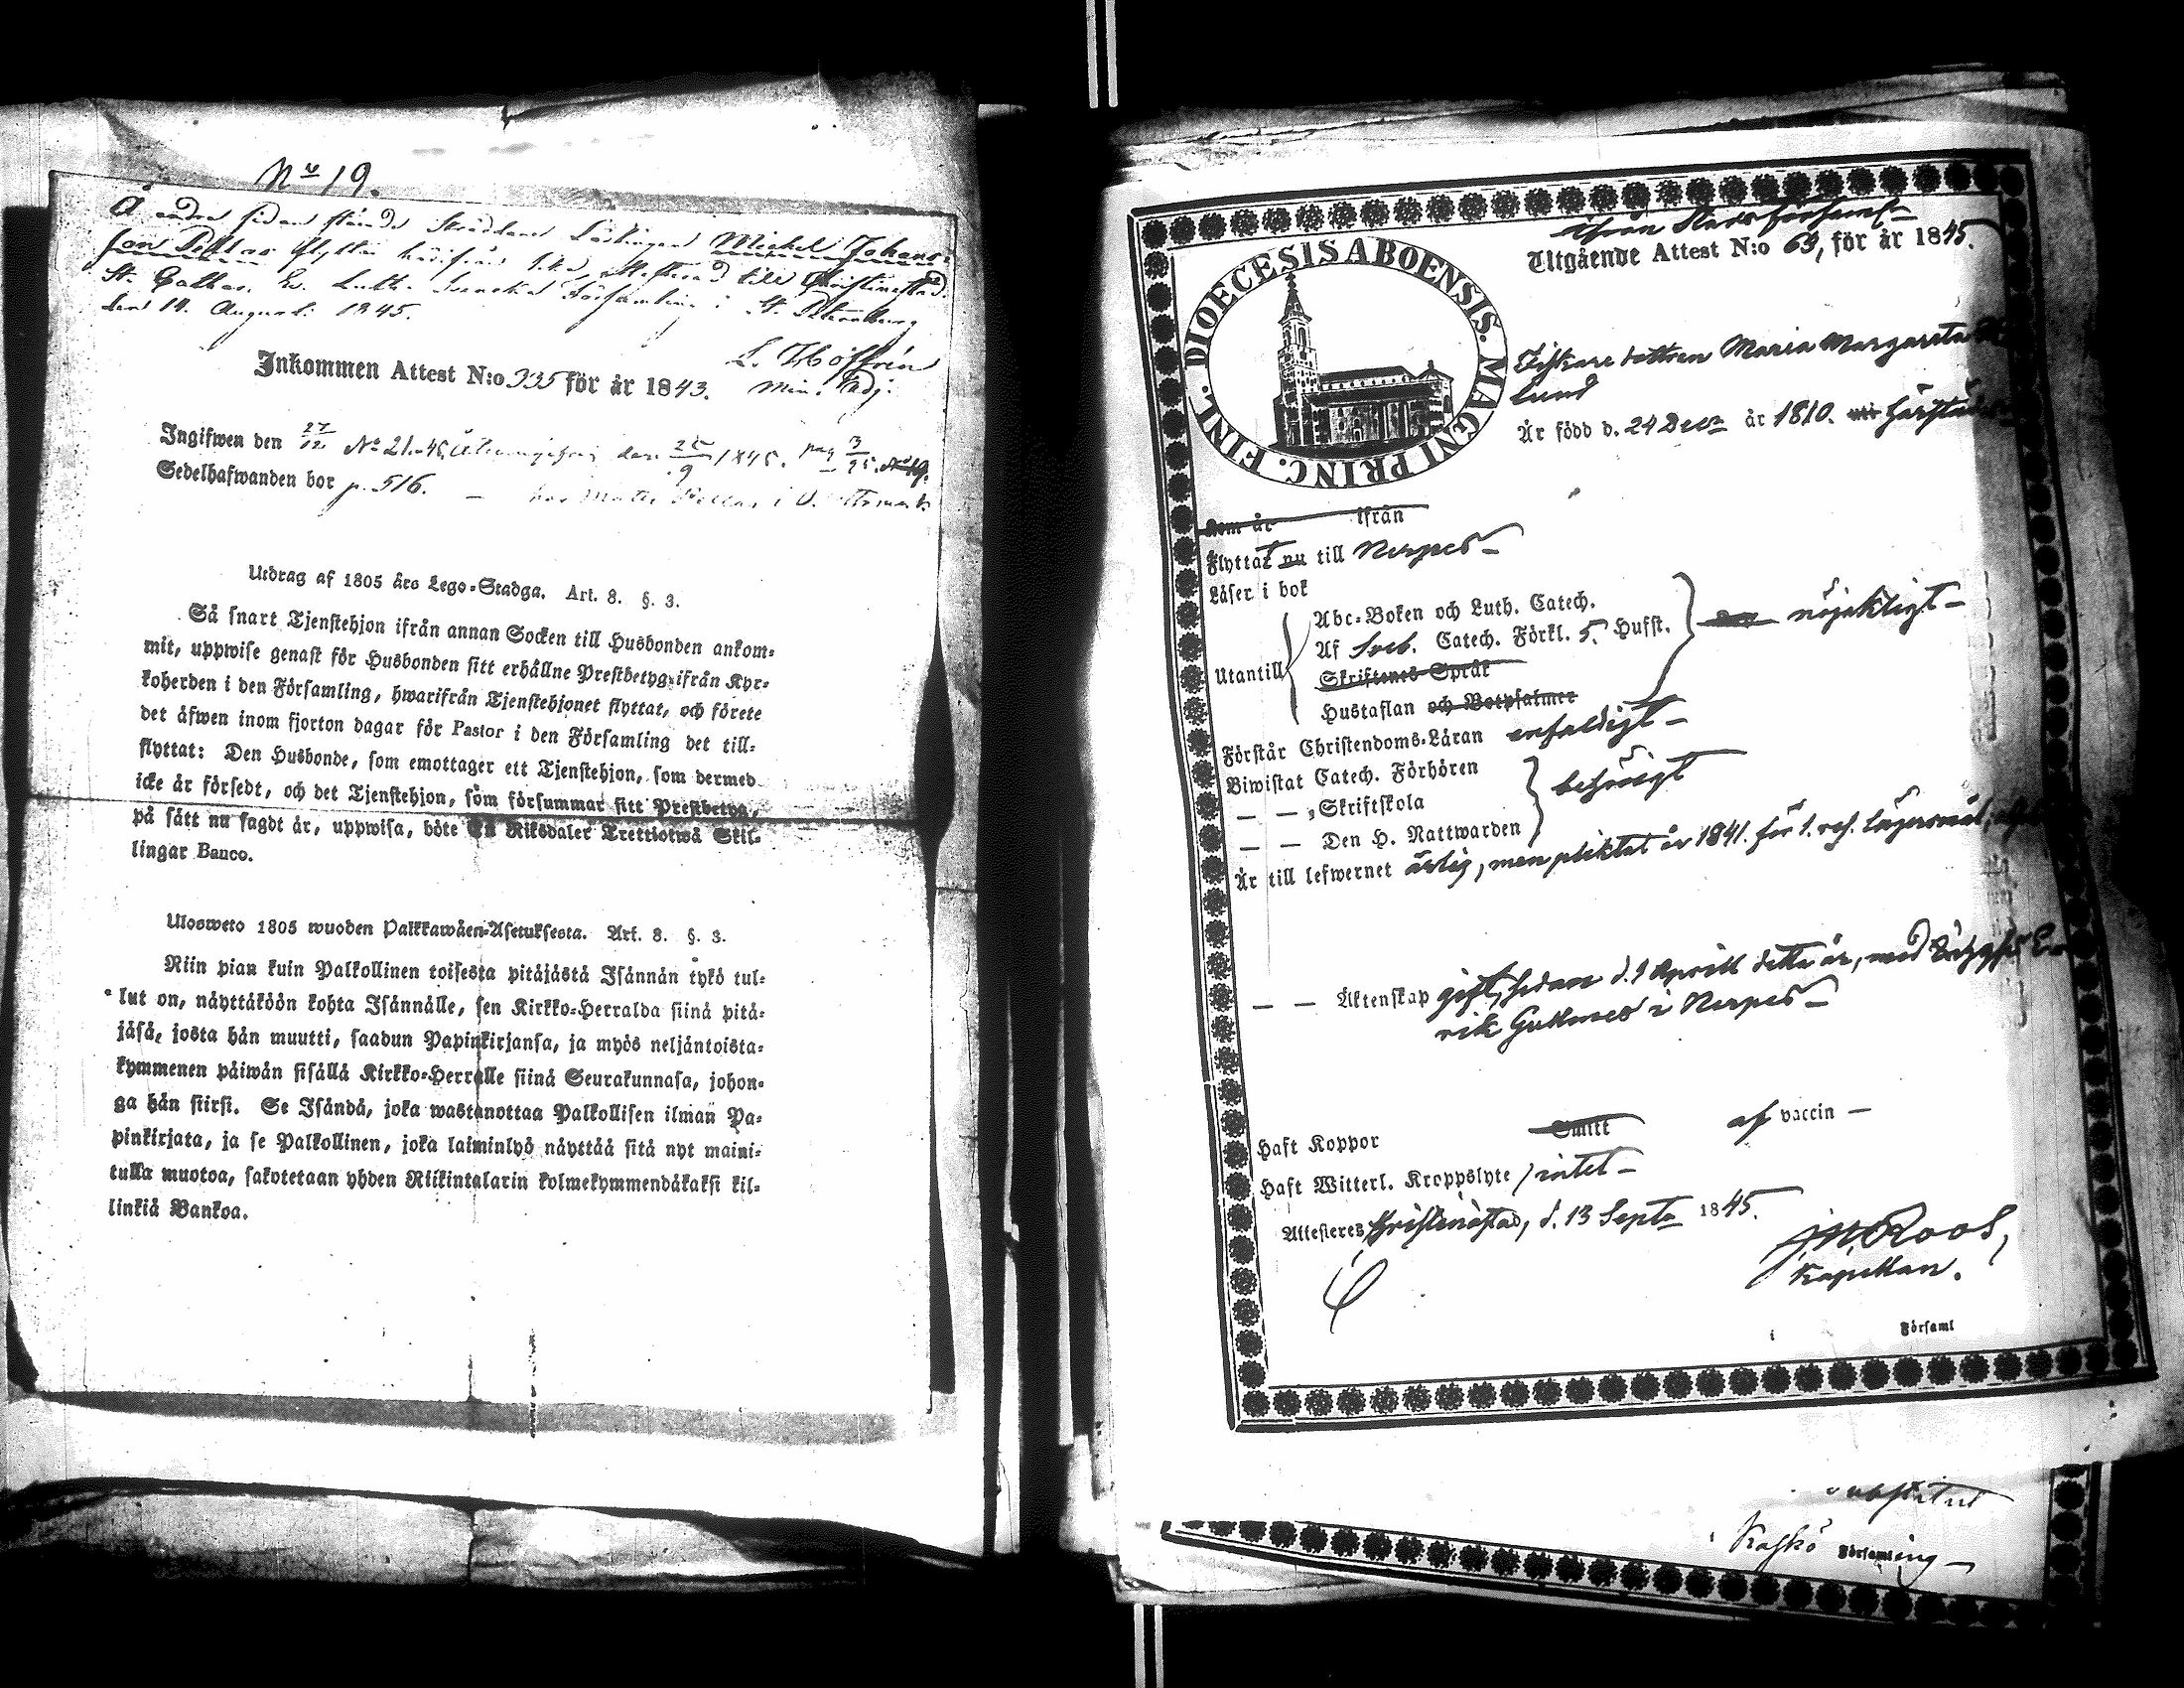 No 19.
Å andra sidan stående Skräddare Lärlingen Mickel Johans-
son Pellas flyttar härifrån till Christinestad.
St. Cathar. Ev. Luth. Svenska Församling i St. Petersburg
den 14 Augusti 1845.
Min. Adj.
Inkommen Attest N:o 335 för år 1843.
Ingifwen den 27/12 No 21. 45 den 25/9 1845. pag 3/95.
Sedelhafwanden bor p. 516. —
Utdrag af 1805 års Lego-Stadga. Art. 8. §. 3.
Så snart Tjenstehjon ifrån annan Socken till Husbonden ankom-
mit, uppwise genast för Husbonden sitt erhållne Prestbetyg ifrån Kyr-
koherden i den Församling, hwarifrån Tjenstehjonet flyttat, och förete
det äfwen inom fjorton dagar för Pastor i den Församling det till-
flyttat: Den Husbonde, som emottager ett Tjenstehjon, som dermed
icke är försedt, och det Tjenstehjon, som försummar sitt Prestbetyg,
på sätt nu sagdt är, uppwisa, böte En Riksdaler Trettiotwå Skil-
lingar Banco.
Ulosweto 1805 wuoden Palkkawäen-Asetuksesta. Art. 8. §. 3.
Niin pian kuin Palkollinen toisesta pitäjästä Isännän tykö tul-
lut on, näyttäköön kohta Isännälle, sen Kirkko-Herralda siinä pitä-
jäsä, josta hän muutti, saadun Papinkirjansa, ja myös neljäntoista-
kymmenen päiwän sisällä Kirkko-Herralle siinä Seurakunnasa, johon-
ga hän siirsi. Se Isändä, joka wastanottaa Palkollisen ilman Pa-
pinkirjata, ja se Palkollinen, joka laiminlyö näyttää sitä nyt maini-
tulla muotoa, sakotetaan yhden Riikintalarin kolmekymmendäkaksi kil-
linkiä Bankoa.
ifrån Stads församl-
Utgående Attest N:o 64, för år 1845.
DIOECESIS ABOENSIS. MAGNI PRINC. FINL.
Fiskare dottren Maria Margareta
lund
Är född d. 24 Decr år 1810. härstädes
Kom år ifrån
Flyttat nu till Nerpes —
Läser i bok
Abc-Boken och Luth. Catech.
Af Sveb. Catech. Förkl. 5. Hufst. nöjaktigt —
Utantill
Skriftenes Språk
Hustaflan och Botpsalmer
Förstår Christendoms-Läran enfaldigt —
Biwistat Catech. Förhören
— — Skriftskola behörigt
— — Den H. Nattwarden
Är till lefwernet ärlig, men pliktat år 1841. för 1. res. lägersmål,
— — Äktenskap gift, sedan d. 9 Aprill detta år, med
rik Guthnes i Nerpes —
Haft Koppor Smitt af vaccin —
Haft Witterl. Kroppslyte intet —
Attesteres Christinæstad, d. 13 Septr 1845.
JM Roos,
Kapellan.
i Församl
substitut
i Kaskö Församling —